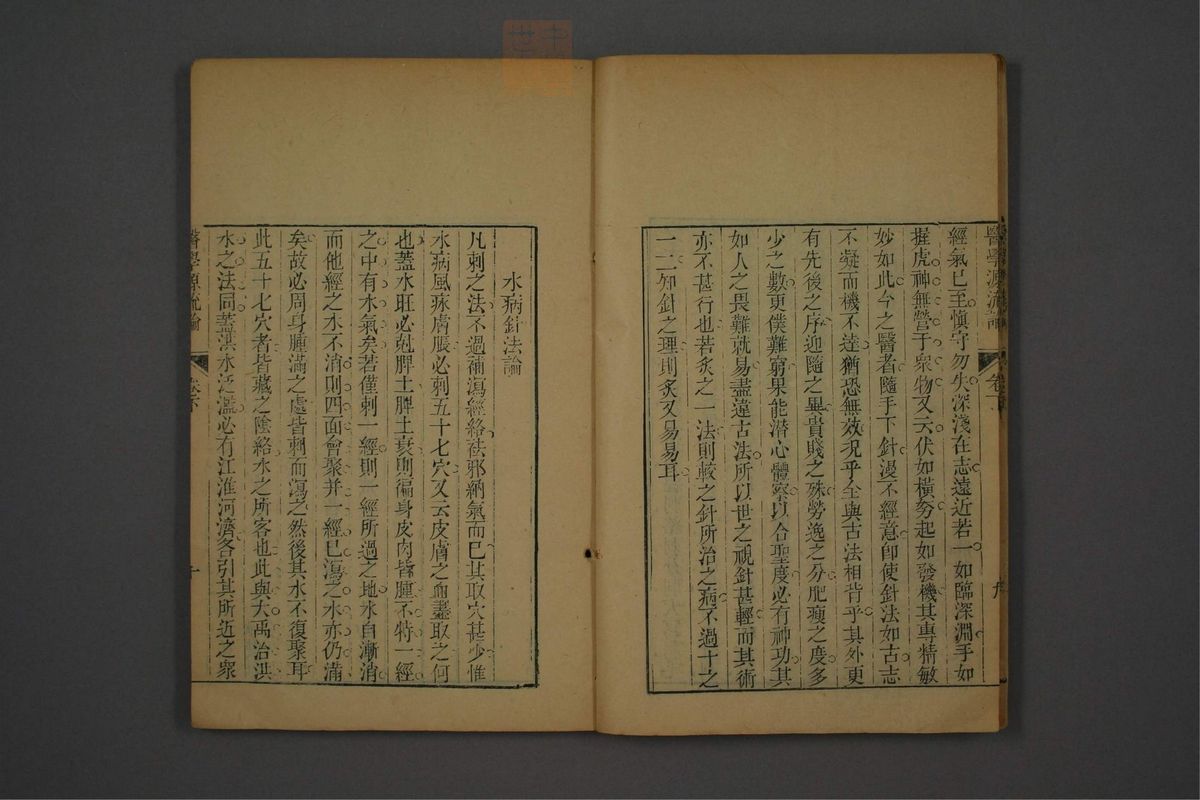 醫學源流論 卷下 九
經氣已至愼守勿失深淺在志遠近若一如臨深淵手如
握虎神無營于衆物又云伏如橫弩起如發機其專精敏
妙如此今之醫者隨手下針漫不經意卽使針法如古志
不凝而機不達猶恐無效况乎全與古法相背乎其外更
有先後之序迎隨之異貴賤之殊勞逸之分肥瘦之度多
少之數更僕難窮果能潛心體察以合聖度必有神功其
如人之畏難就易盡違古法所以世之視針甚輕而其術
亦不甚行也若炙之一法則較之針所治之病不過十之
一二知針之理則炙又易易耳
水病針法論
凡刺之法不過補瀉經絡祛邪納氣而已其取穴甚少惟
水病風㽷膚脹必刺五十七穴又云皮膚之血盡取之何
也蓋水旺必尅脾土脾土衰則徧身皮肉皆腫不特一經
之中有水氣矣若僅刺一經則一經所過之地水自漸消
而他經之水不消則四面會聚并一經已瀉之水亦仍滿
矣故必周身腫滿之處皆刺而瀉之然後其水不復聚耳
此五十七穴者皆藏之陰絡水之所客也此與大禹治洪
水之法同蓋洪水泛濫必有江淮河濟各引其所近之衆
醫學源流論 卷下 十